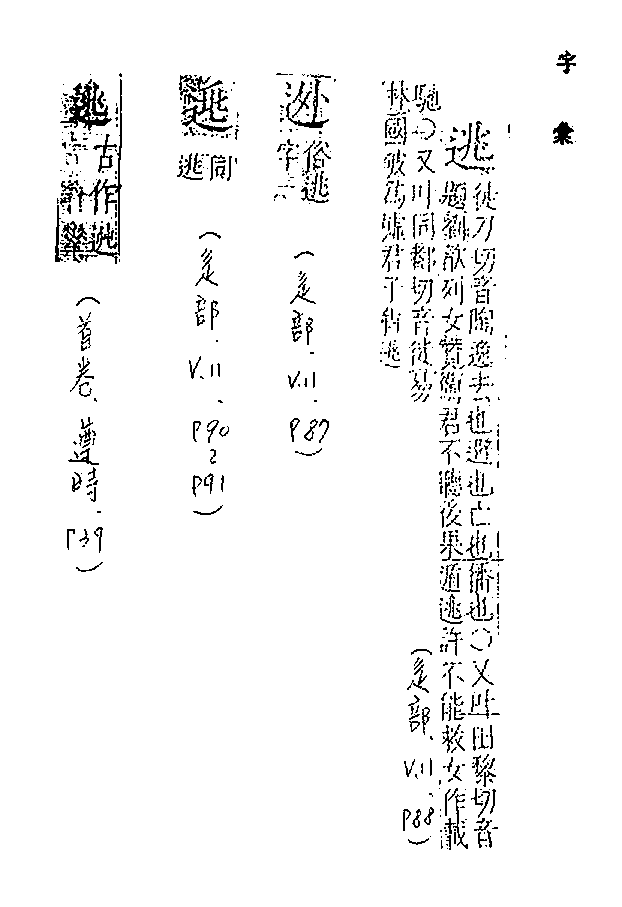 字彙
逃
徒刀切音陶逸去也避也亡也播也○又叶田黎切音
題劉歆列女贊衛君不聽後果遁逃許不能救女作載
馳○又叶同都切音徒易
林國破為墟君子皆逃
(辵部. V.11. P88)
外 俗逃字
(辵部. V.11. P87)
同逃
(辵部. V.11. P90 P91)
古作
(首卷. 遵時. P39)